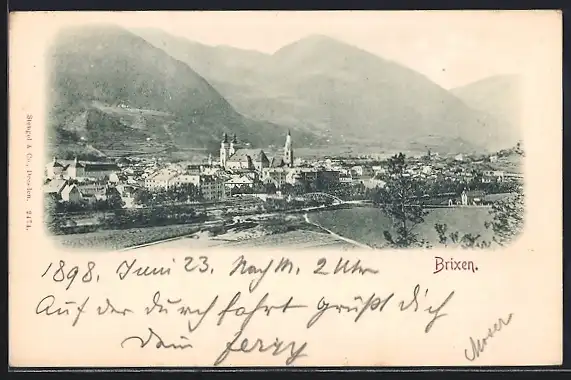 Stengel & Co., Dresden. 2474.
Brixen.
1898. Juni 23. Nachm. 2 Uhr
Auf der durchfahrt grüßt dich
dein
Moser